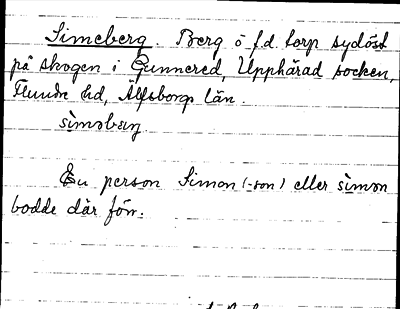 Simeberg. Berg o f.d. torp sydöst
på skogen i Gunnered, Upphärad socken,
Flundre hd, Älfsborgs län.
sìmebærj
En person Simon (-son) eller sìmən
bodde där förr.